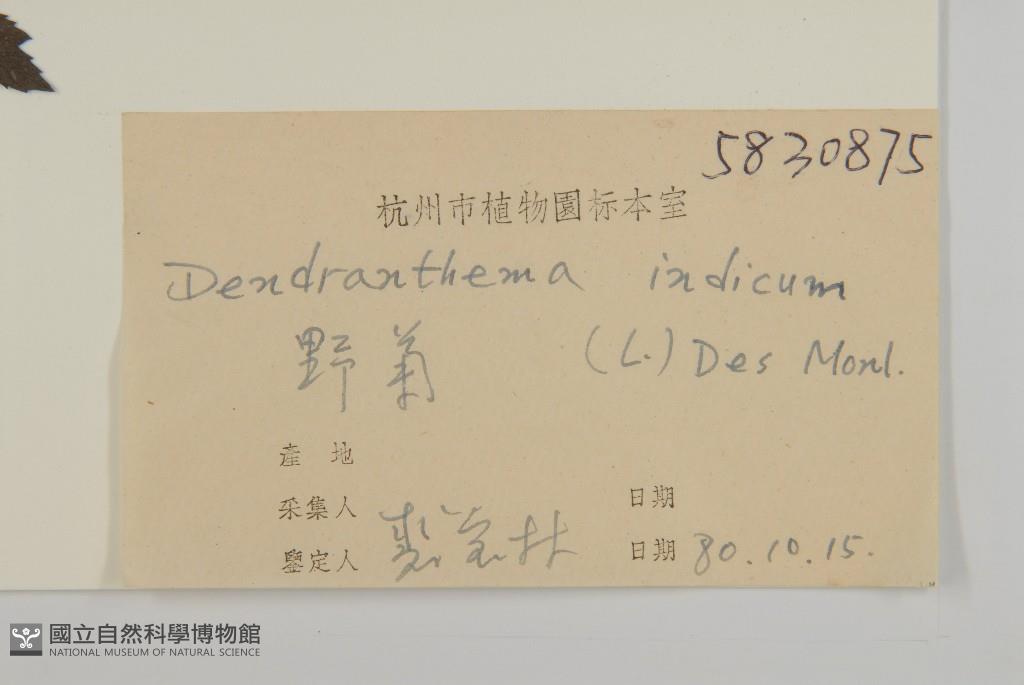 5830875
杭州市植物園标本室
Dendranthema indicum
野菊 (L.) Des Moul.
產 地
采集人 日期
鑒定人 裘宝林 日期 80.10.15.
國立自然科學博物館
NATIONAL MUSEUM OF NATURAL SCIENCE